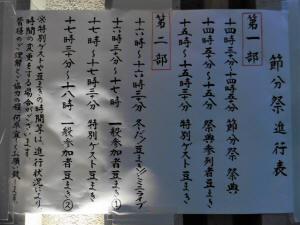 節分祭進行表
第一部
十四時三分〜十四時五分 節分祭 祭典
十四時五分〜十五分 祭典参列者豆まき
十五時〜十五時三分 特別ゲスト豆まき
第二部
十六時〜十六時三分 冬だ!豆まきミニライブ
十六時三分〜十七時 一般参加者豆まき①
十七時〜十七時三分 特別ゲスト豆まき
十七時三分〜十八時 一般参加者豆まき②
※特別ゲスト豆まきの時間等は進行状況により
時間の変更をする場合がございます。
皆様のご理解とご協力の程、何卒宜しくお願い致します。